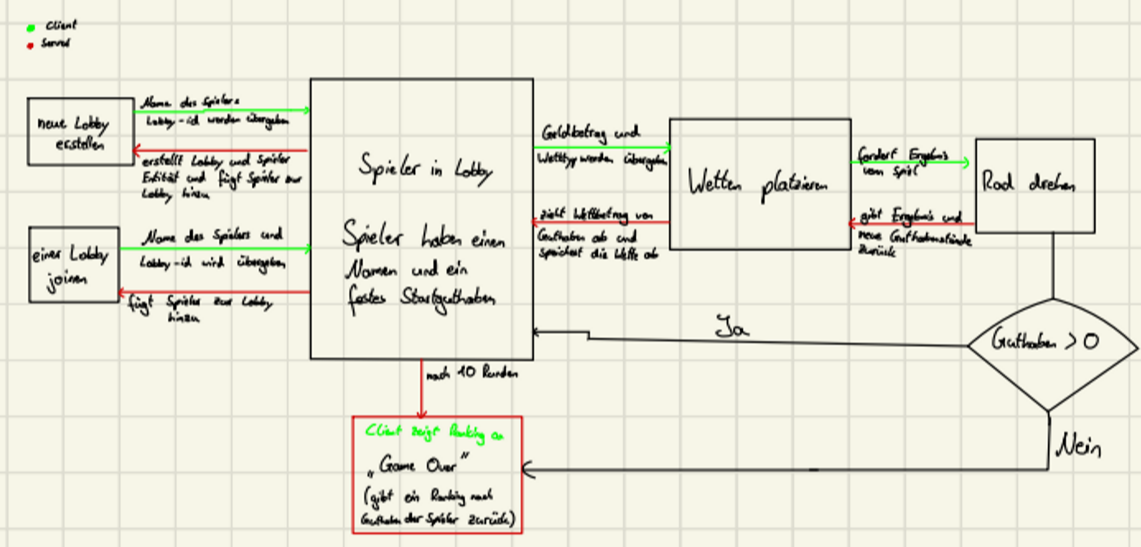 Client
Server
neue Lobby
erstellen
Name des Spielers
Lobby-id werden übergeben
erstellt Lobby und Spieler
Entität und fügt Spieler zur
Lobby hinzu
einer Lobby
joinen
Name des Spielers und
Lobby-id wird übergeben
fügt Spieler zur Lobby
hinzu
Spieler in Lobby
Spieler haben einen
Namen und ein
festes Startguthaben
Geldbetrag und
Wetttyp werden übergeben
zieht Wettbetrag von
Guthaben ab und
speichert die Wette ab
Wetten platzieren
fordert Ergebnis
vom Spiel
gibt Ergebnis und
neue Guthabenstände
zurück
Rad drehen
Guthaben > 0
Ja
Nein
nach 10 Runden
Client zeigt Ranking an
„Game Over"
(gibt ein Ranking nach
Guthaben der Spieler zurück)